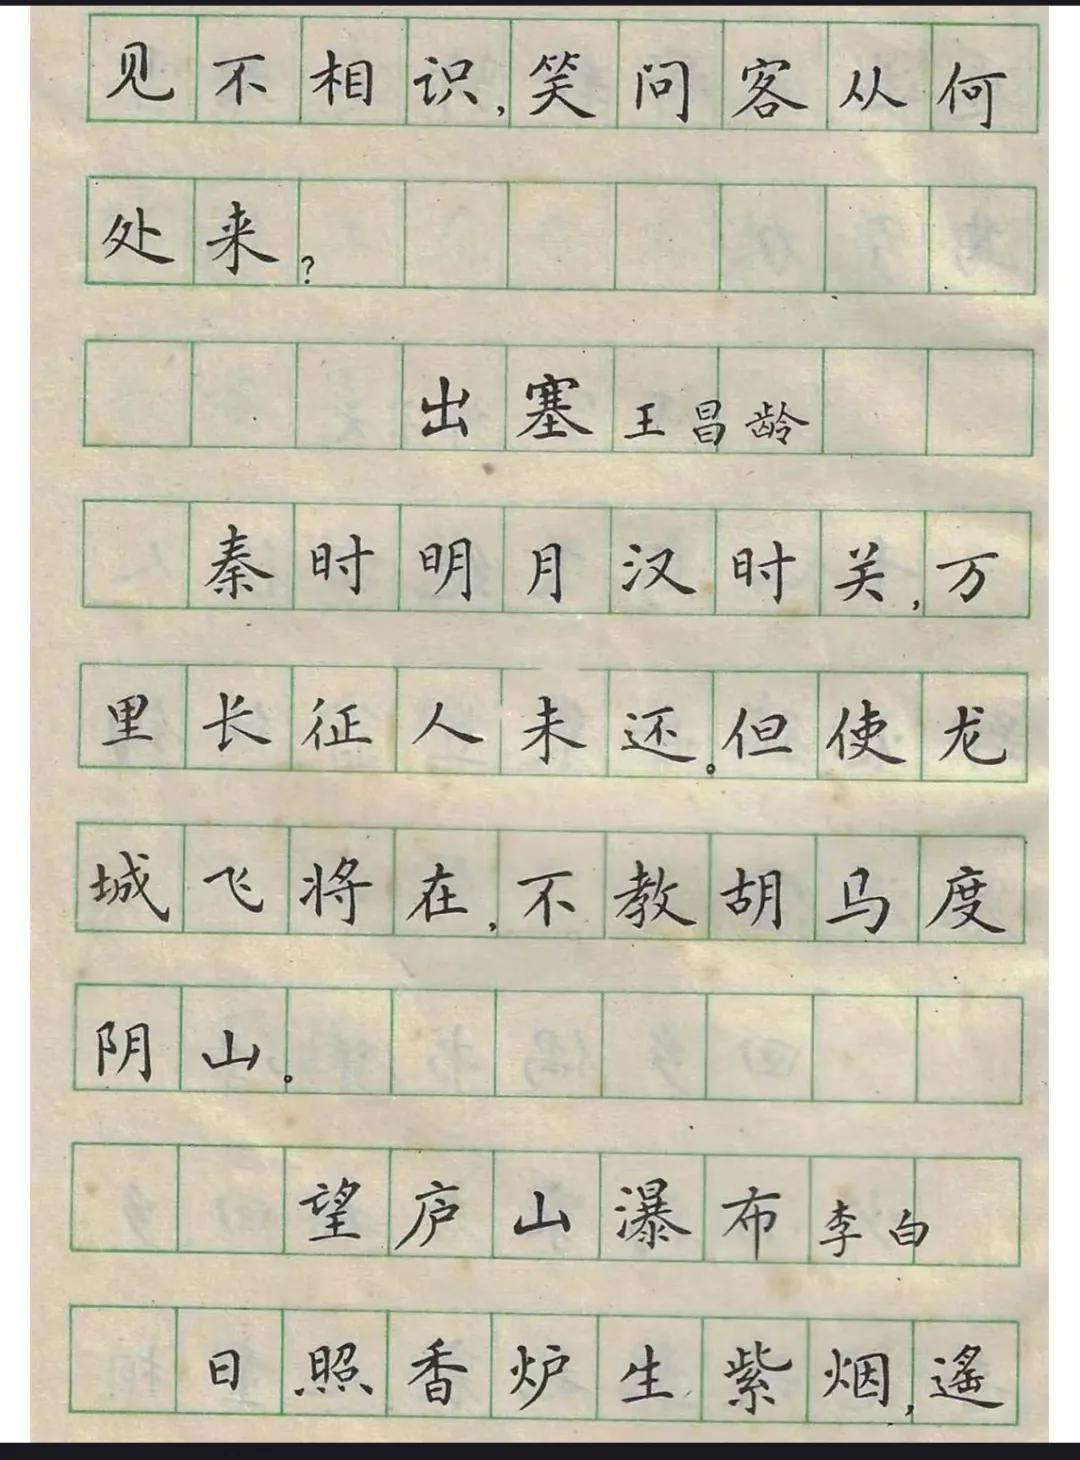 见不相识，笑问客从何
处来？
出塞 王昌龄
秦时明月汉时关，万
里长征人未还。但使龙
城飞将在，不教胡马度
阴山。
望庐山瀑布 李白
日照香炉生紫烟，遥